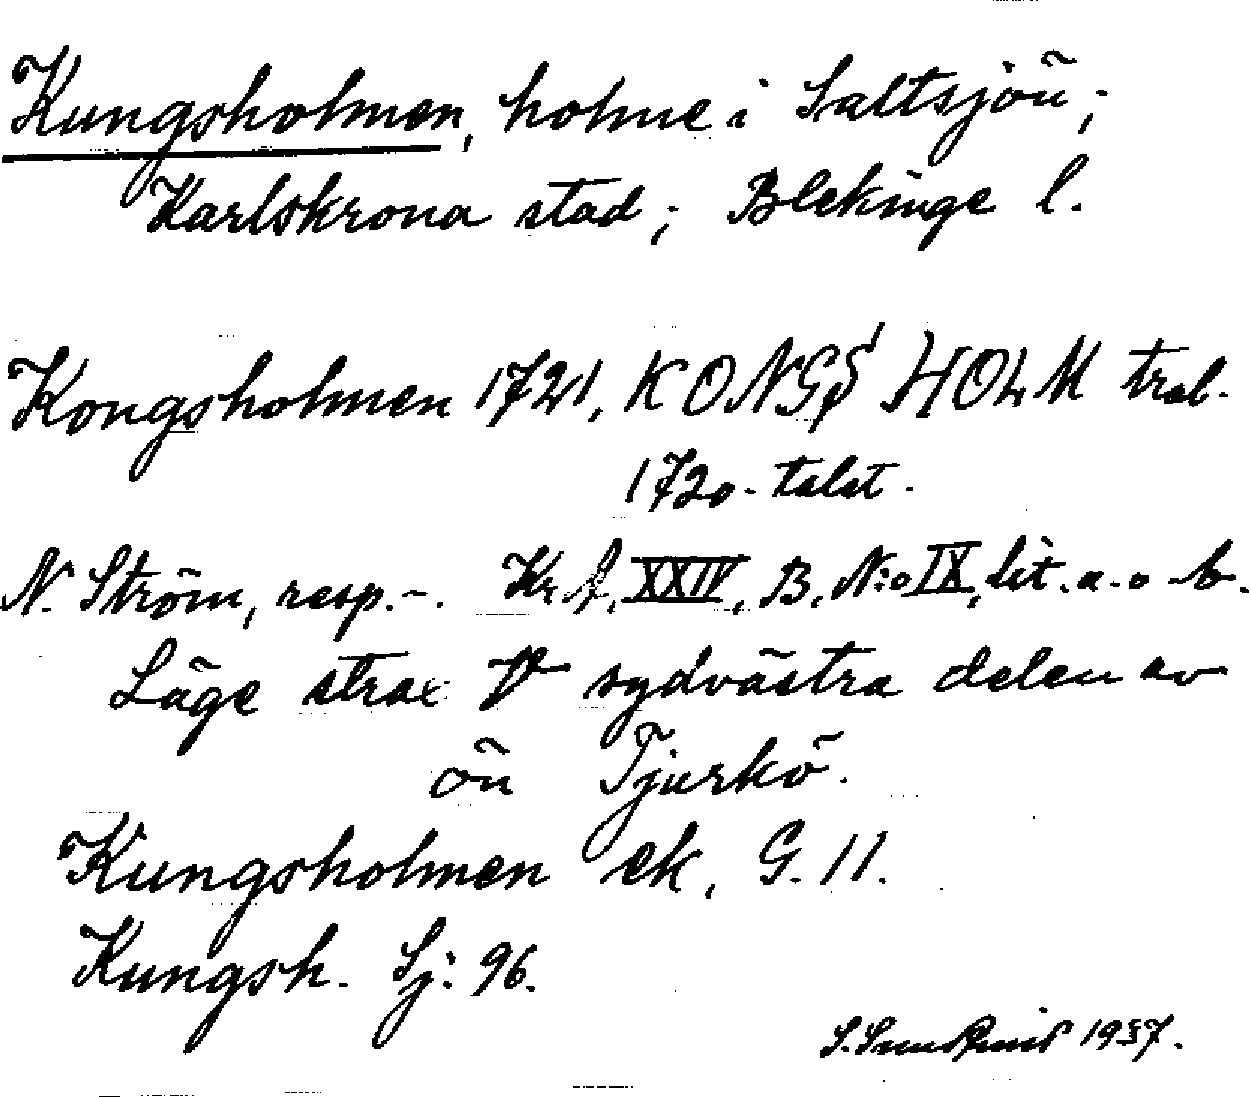 Kungsholmen, holme i Saltsjön;
Karlskrona stad; Blekinge l.
Kongsholmen 1721, KONGS HOLM
1720-talet.
N. Ström, resp. -. Kr. A. XXIV, B. N:o IX, lit. a. o b.
Läge strax V sydvästra delen av
ön Tjurkö.
Kungsholmen ek. G. 11.
Kungsh. Sj: 96.
1937.